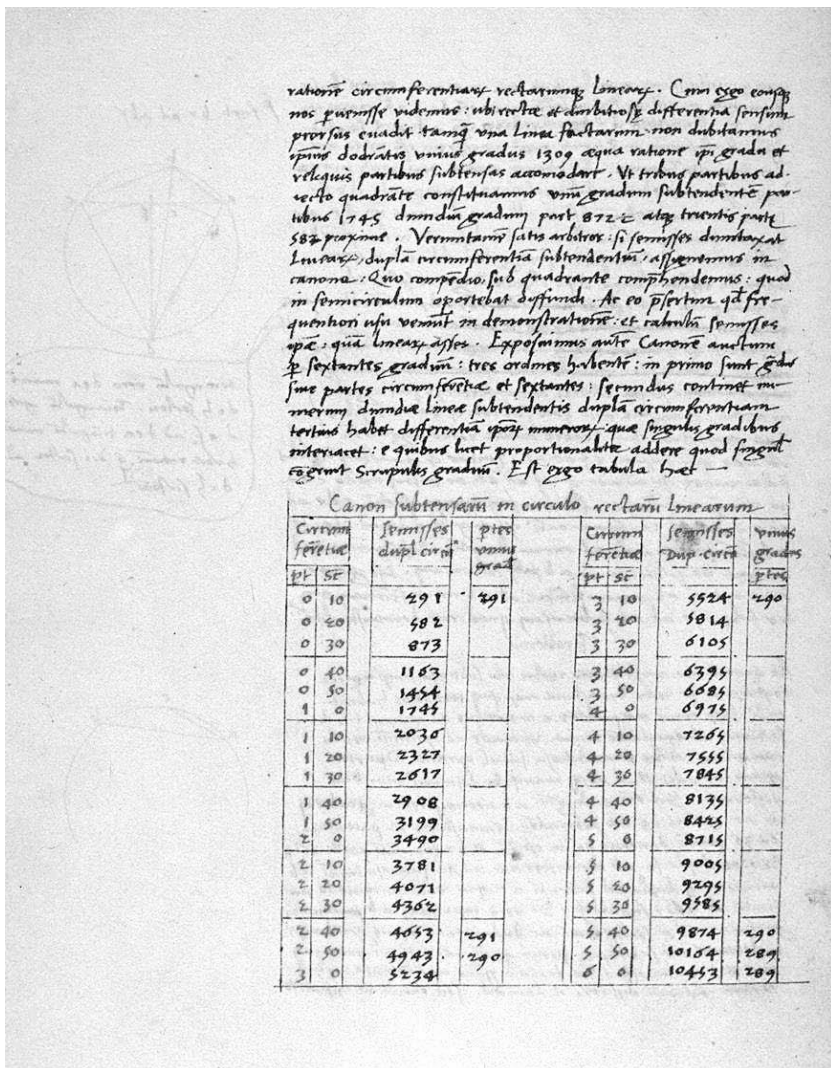 rationē circumferentiarꝝ rectarumqꝫ linearꝝ. Cum ergo eousqꝫ
nos ꝑuenisse videmus: ubi recta et ambitiosꝫ differentia sensum
prorsus euadit tamqꝫ vna linea factarum non dubitamus
ipsius dodrātis vnius gradus 1309 æqua ratione ipi gradu et
reliquis partibus subtensas accomodare. Vt tribus partibus ad-
iecto quadrāte constituamus vnū gradum subtendentē par-
tibus 1745 dimidiū gradum part 872 atqꝫ trientis parti
582 proxime. Verumtamē satis arbitror: si semisses dumtaxat
linearꝝ, duplā circumferentiā subtendentiū, assignemus in
canone: Quo compendio, sub quadrante comp̄hendemus: quod
in semicirculum oportebat diffundi. Ac eo p̄sertim qd fre-
quentiori usu veniūt in demonstrationē: et calculū semisses
ipæ: quā linearꝝ asses. Exposuimus autē Canonē auctum
ꝑ sextantes graduū: tres ordines habentē: in primo sunt gradus
siue partes circumferētiæ et sextantes: secundus continet nu-
merum dimidiæ lineæ subtendentis duplā circumferentiam
tertius habet differentiā ipsorꝝ numerorꝝ quæ singulis gradibus
interiacet: e quibus licet proportionaliter addere quod singul
cōgruit Scrupulis graduū. Est ergo tabula hæc —
Canon subtensarū in circulo rectarū linearum
Circum Semisses ptes Circum Semisses vnius
ferētiæ dupl circū vnius ferētiæ Dup. circū gradus
grad
pt sc pt sc ptes
0 10 291 291 3 10 5524 290
0 20 582 3 20 5814
0 30 873 3 30 6105
0 40 1163 3 40 6395
0 50 1454 3 50 6685
1 0 1745 4 0 6975
1 10 2036 4 10 7265
1 20 2327 4 20 7555
1 30 2617 4 30 7845
1 40 2908 4 40 8135
1 50 3199 4 50 8425
2 0 3490 5 0 8715
2 10 3781 5 10 9005
2 20 4071 5 20 9295
2 30 4362 5 30 9585
2 40 4653 291 5 40 9874 290
2 50 4943 290 5 50 10164 289
3 0 5234 6 0 10453 289